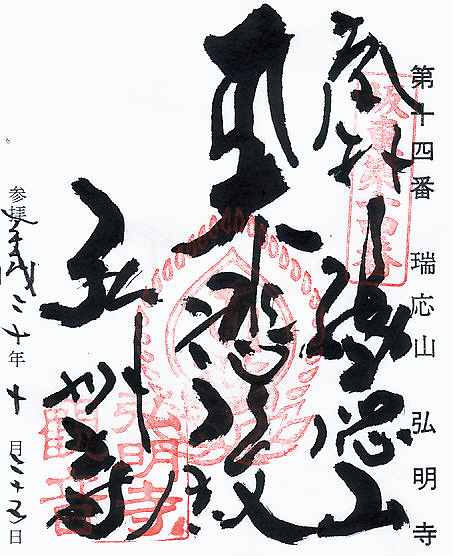 第十四番 瑞応山 弘明寺
坂東第十四番
奉拝 瑞應山
弘明寺
弘明寺
観音
参拝 平成二十年十月二十五日